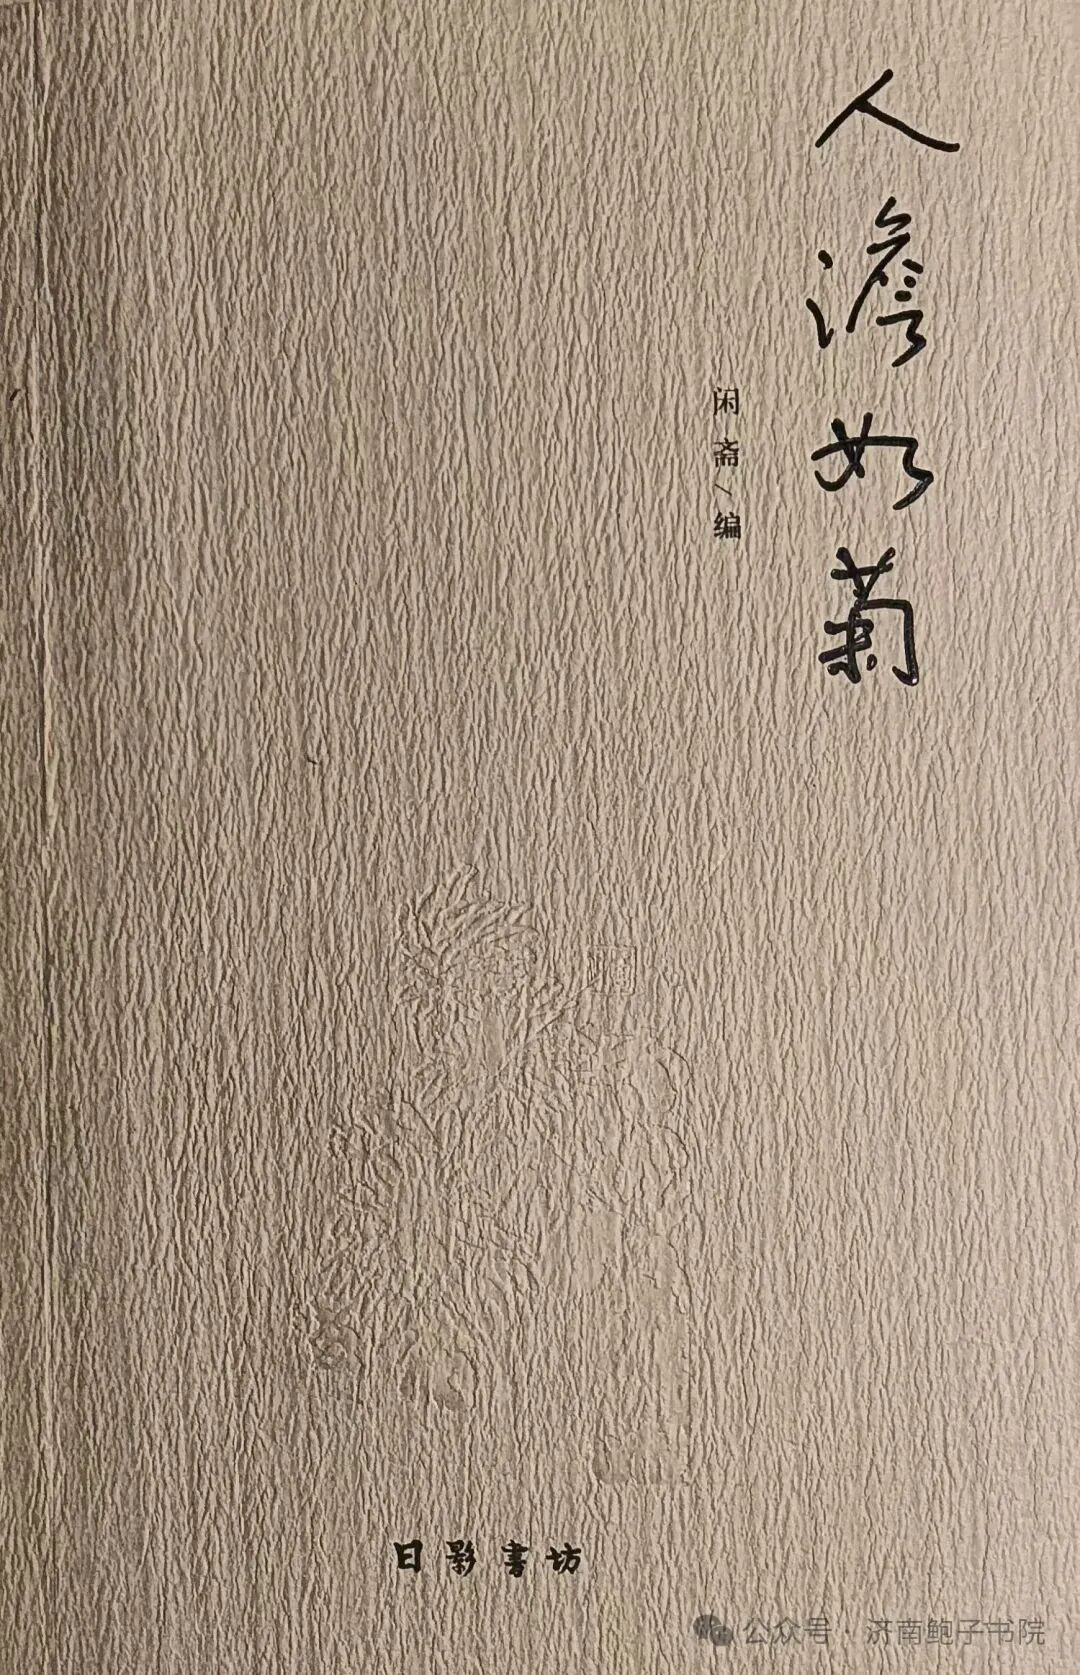 人澹如菊
闲斋／编
日影書坊
公众号 · 济南鲍子书院